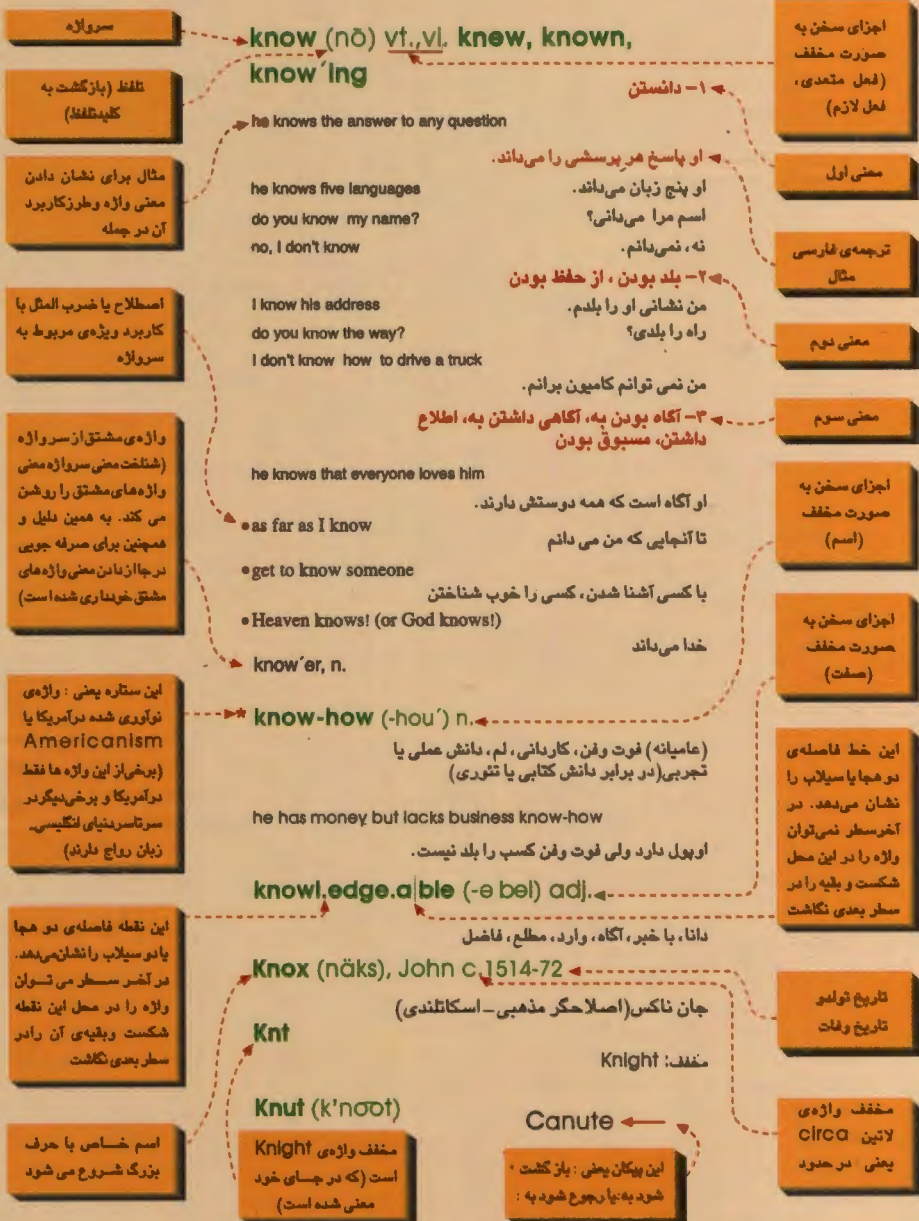 سرواژه
تلفظ (بازگشت به
کلیدتلفظ)
مثال برای نشان دادن
معنی واژه وطرزکاربرد
آن در جمله
اصطلاح یا ضرب المثل با
کاربرد ویژه‌ی مربوط به
سرواژه
واژه‌ی مشتق از سرواژه
(شناخت معنی سرواژه معنی
واژه‌های مشتق را روشن
می کند. به همین دلیل و
همچنین برای صرفه جویی
درجا از دادن معنی واژه های
مشتق خودداری شده است)
این ستاره یعنی : واژه‌ی
نوآوری شده درآمریکا یا
Americanism
(برخی از این واژه ها فقط
درآمریکا و برخی دیگر در
سرتاسر دنیای انگلیسی-
زبان رواج دارند)
این نقطه فاصله‌ی دو هجا
یا دو سیلاب را نشان می‌دهد.
در آخر سطر می توان
واژه را در محل این نقطه
شکست وبقیه‌ی آن را در
سطر بعدی نگاشت
اسم خاص با حرف
بزرگ شروع می شود
know (nō) vt.,vi. knew, known,
know´ing
۱- دانستن
he knows the answer to any question
او پاسخ هر پرسشی را می‌داند.
he knows five languages او پنج زبان می‌داند.
do you know my name? اسم مرا می‌دانی؟
no, I don't know نه ، نمی‌دانم.
۲- بلد بودن ، از حفظ بودن
I know his address من نشانی او را بلدم.
do you know the way? راه را بلدی؟
I don't know how to drive a truck
من نمی توانم کامیون برانم.
۳- آگاه بودن به، آگاهی داشتن به، اطلاع
داشتن، مسبوق بودن
he knows that everyone loves him
او آگاه است که همه دوستش دارند.
•as far as I know
تا آنجایی که من می دانم
•get to know someone
با کسی آشنا شدن، کسی را خوب شناختن
•Heaven knows! (or God knows!)
خدا می‌داند
know´er, n.
* know-how (-hou´) n.
(عامیانه) فوت وفن، کاردانی، لم، دانش عملی یا
تجربی(در برابر دانش کتابی یا تئوری)
he has money but lacks business know-how
اوپول دارد ولی فوت وفن کسب را بلد نیست.
knowl.edge.a|ble (-ə bəl) adj.
دانا، با خبر، آگاه، وارد، مطلع، فاضل
Knox (näks), John c.1514-72
جان ناکس(اصلاحگر مذهبی-اسکاتلندی)
Knt
مخفف: Knight
Knut (k'no͞ot)
Canute ←
مخفف واژه‌ی Knight
است (که در جای خود
معنی شده است)
این پیکان یعنی : باز گشت
شود به:یا رجوع شود به :
اجزای سخن به
صورت مخفف
(فعل متعدی،
فعل لازم)
معنی اول
ترجمه‌ی فارسی
مثال
معنی دوم
معنی سوم
اجزای سخن به
صورت مخفف
(اسم)
اجزای سخن به
صورت مخفف
(صفت)
این خط فاصله‌ی
دو هجا یا سیلاب را
نشان می‌دهد. در
آخرسطر نمی‌توان
واژه را در این محل
شکست و بقیه را در
سطر بعدی نگاشت
تاریخ تولدو
تاریخ وفات
مخفف واژه‌ی
لاتین circa
یعنی در حدود